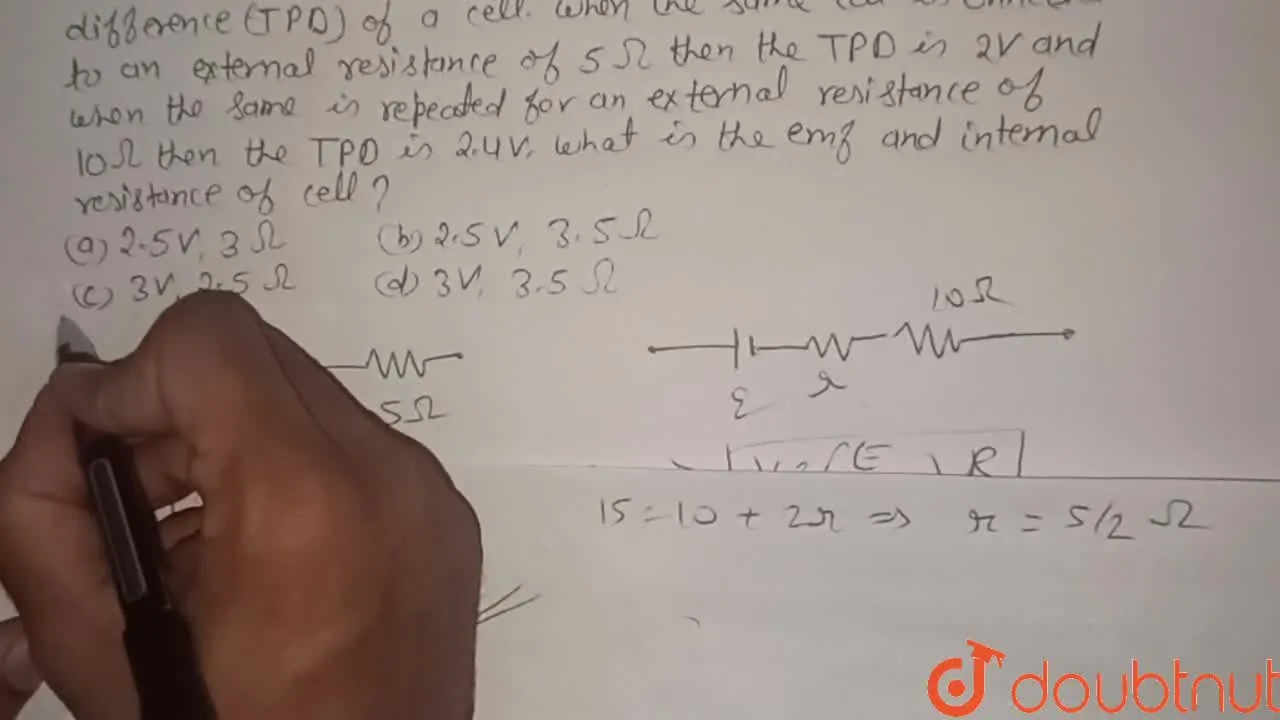 difference (TPD) of a cell. When the same
to an external resistance of 5 Ω then the TPD is 2V and
when the same is repeated for an external resistance of
10Ω then the TPD is 2.4V. what is the emf and internal
resistance of cell?
(a) 2.5V, 3 Ω (b) 2.5 V, 3.5 Ω
(c) 3V, 2.5 Ω (d) 3V, 3.5 Ω
10Ω
5Ω
ε r
R
15 = 10 + 2r ⇒ r = 5/2 Ω
doubtnut